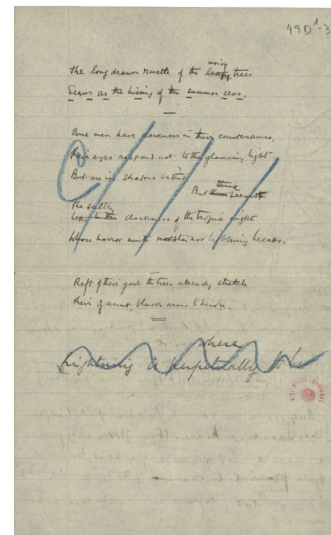 49D d-3
The long drawn rustle of the noisy leafy trees
Seems as the hissing of the summer seas.
Some men have darkness in their countenance,
Their eyes respond not to the glancing light
But are in shadow
But thine seem
The sultry
darkness of the tropic night
Whose horror nor lightning breaks.
Reft of their garb the trees already stretch
Their gaunt, black arms
where
Lightning is perpetually